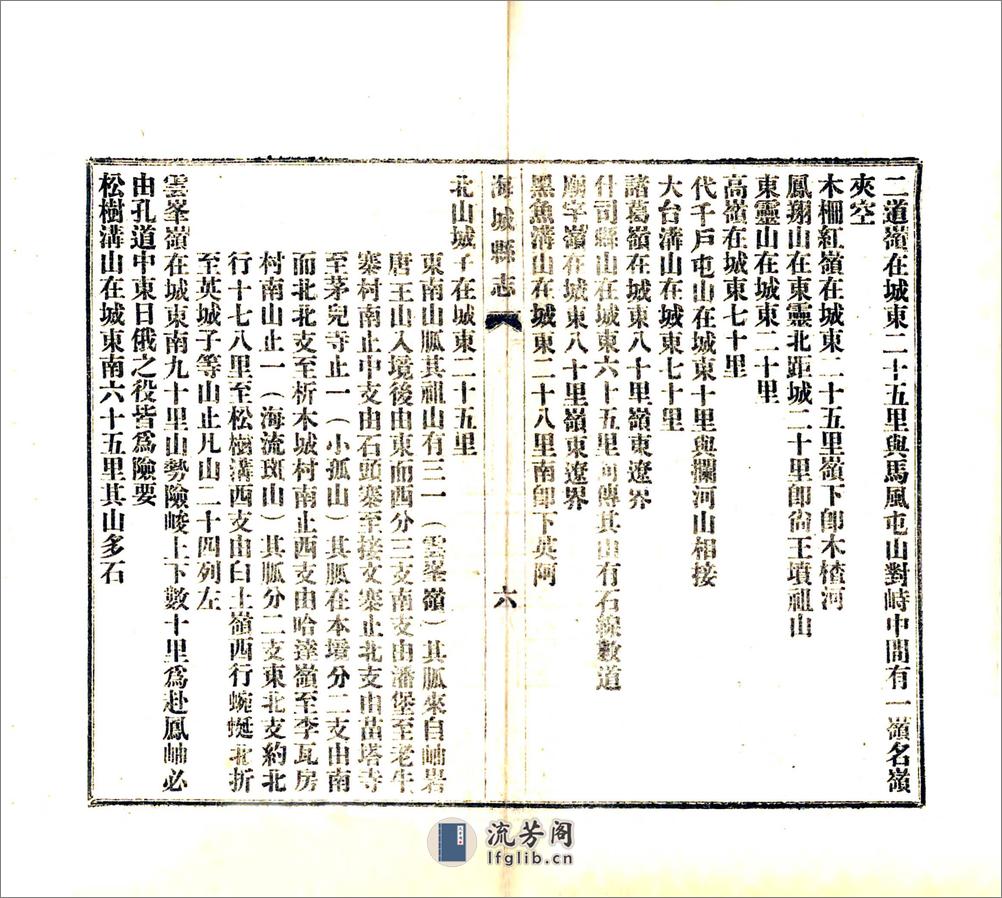 二道嶺在城東二十五里與馬風屯山對峙中間有一嶺名嶺
夾空
木柵紅嶺在城東二十五里嶺下卽木楂河
鳳翔山在東靈北距城二十里卽尙王墳祖山
東靈山在城東二十里
高嶺在城東七十里
代千戶屯山在城東十里與攔河山相接
大台溝山在城東七十里
諸葛嶺在城東八十里嶺東遼界
什司縣山在城東六十五里河傅其山有石線數道
廟宇嶺在城東八十里嶺東遼界
黑魚溝山在城東二十八里南卽下英阿
海城縣志
六
北山城子在城東二十五里
東南山脈其祖山有三一（雲峯嶺）其脈來自岫岩
唐王山入境後由東而西分三支南支由潘堡至老牛
寨村南止中支由石頭寨至接文寨止北支由苗塔寺
至茅兒寺止一（小孤山）其脈在本境分二支由南
而北北支至析木城村南止西支由哈達嶺至李瓦房
村南山止一（海流斑山）其脈分二支東北支約北
行十七八里至松樹溝西支由白土嶺西行蜿蜒北折
至英城子等山止凡山二十四列左
雲峯嶺在城東南九十里山勢險峻上下數十里爲赴鳳岫必
由孔道中東日俄之役皆爲險要
松樹溝山在城東南六十五里其山多石
流芳阁
lfglib.cn